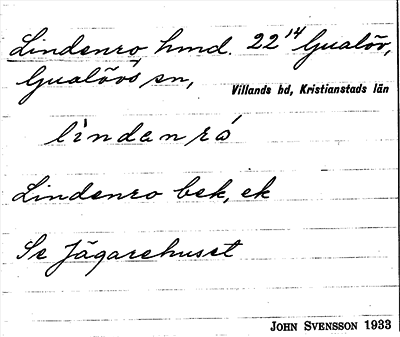 Lindenro hmd. 22¹⁴ Gualöv,
Gualövs sn,
Villands hd, Kristianstads län
lìndanró
Lindenro bek, ek
Se Jägarehuset
JOHN SVENSSON 1933